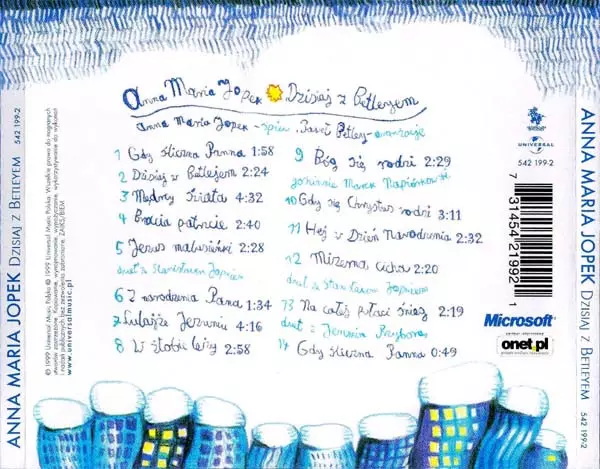 Anna Maria Jopek Dzisiaj z Betleyem
Anna Maria Jopek - śpiew, Paweł Betley - aranżacje
1 Gdy śliczna Panna 1:58
2 Dzisiaj w Betlejem 2:24
3 Mędrcy świata 4:32
4 Bracia patrzcie 2:40
5 Jezus malusieński 2:28
duet z Stanisławem
6 Z narodzenia Pana 1:34
7 Lulajże Jezuniu 4:16
8 W żłobie leży 2:58
9 Bóg się rodzi 2:29
gościnnie Marek Napiórkowski
10 Gdy się Chrystus rodzi 3:11
11 Hej w Dzień Narodzenia 2:32
12 Mizerna cicha 2:20
duet z Stanisławem
13 Na całej połaci śnieg 2:19
duet z Jeremim Przyborą
14 Gdy śliczna Panna 0:49
UNIVERSAL
542 199-2
7 31454 21992 1
Microsoft
onet.pl
ANNA MARIA JOPEK DZISIAJ Z BETLEYEM 542 199-2
ANNA MARIA JOPEK DZISIAJ Z BETLEYEM 542 199-2
℗ 1999 Universal Music Polska © 1999 Universal Music Polska. Wszelkie prawa do nagranych
www.universalmusic.pl